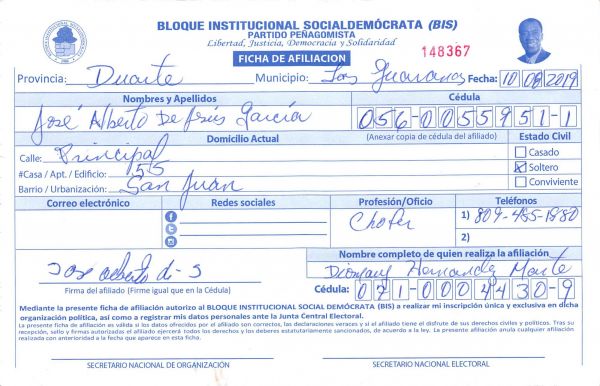 BLOQUE INSTITUCIONAL SOCIALDEMÓCRATA (BIS)
PARTIDO PEÑAGOMISTA
Libertad, Justicia, Democracia y Solidaridad
FICHA DE AFILIACION
148367
Provincia: Duarte Municipio: Las Guaranas Fecha: 10/08/2019
Nombres y Apellidos Cédula
José Alberto De Jesús García 056-0055951-1
Domicilio Actual (Anexar copia de cédula del afiliado) Estado Civil
Calle: Principal Casado
#Casa / Apt. / Edificio: 155 Soltero
Barrio / Urbanización: San Juan Conviviente
Correo electrónico Redes sociales Profesión/Oficio Teléfonos
Chofer 1) 809-485-1880
2)
Nombre completo de quien realiza la afiliación
Jose alberto d- J Hernandez
Firma del afiliado (Firme igual que en la Cédula) Cédula: 071-0004430-9
Mediante la presente ficha de afiliación autorizo al BLOQUE INSTITUCIONAL SOCIAL DEMÓCRATA (BIS) a realizar mi inscripción única y exclusiva en dicha
organización política, así como a registrar mis datos personales ante la Junta Central Electoral.
La presente ficha de afiliación es válida si los datos ofrecidos por el afiliado son correctos, las declaraciones veraces y si el afiliado tiene el disfrute de sus derechos civiles y políticos. Tras su
recepción, sello y firmas autorizadas el afiliado ejercerá todos los derechos y los deberes estatutariamente sancionados, de acuerdo a la ley. La presente afiliación anula cualquier afiliación
realizada con anterioridad a la fecha que aparece en esta ficha.
SECRETARIO NACIONAL DE ORGANIZACIÓN SECRETARIO NACIONAL ELECTORAL